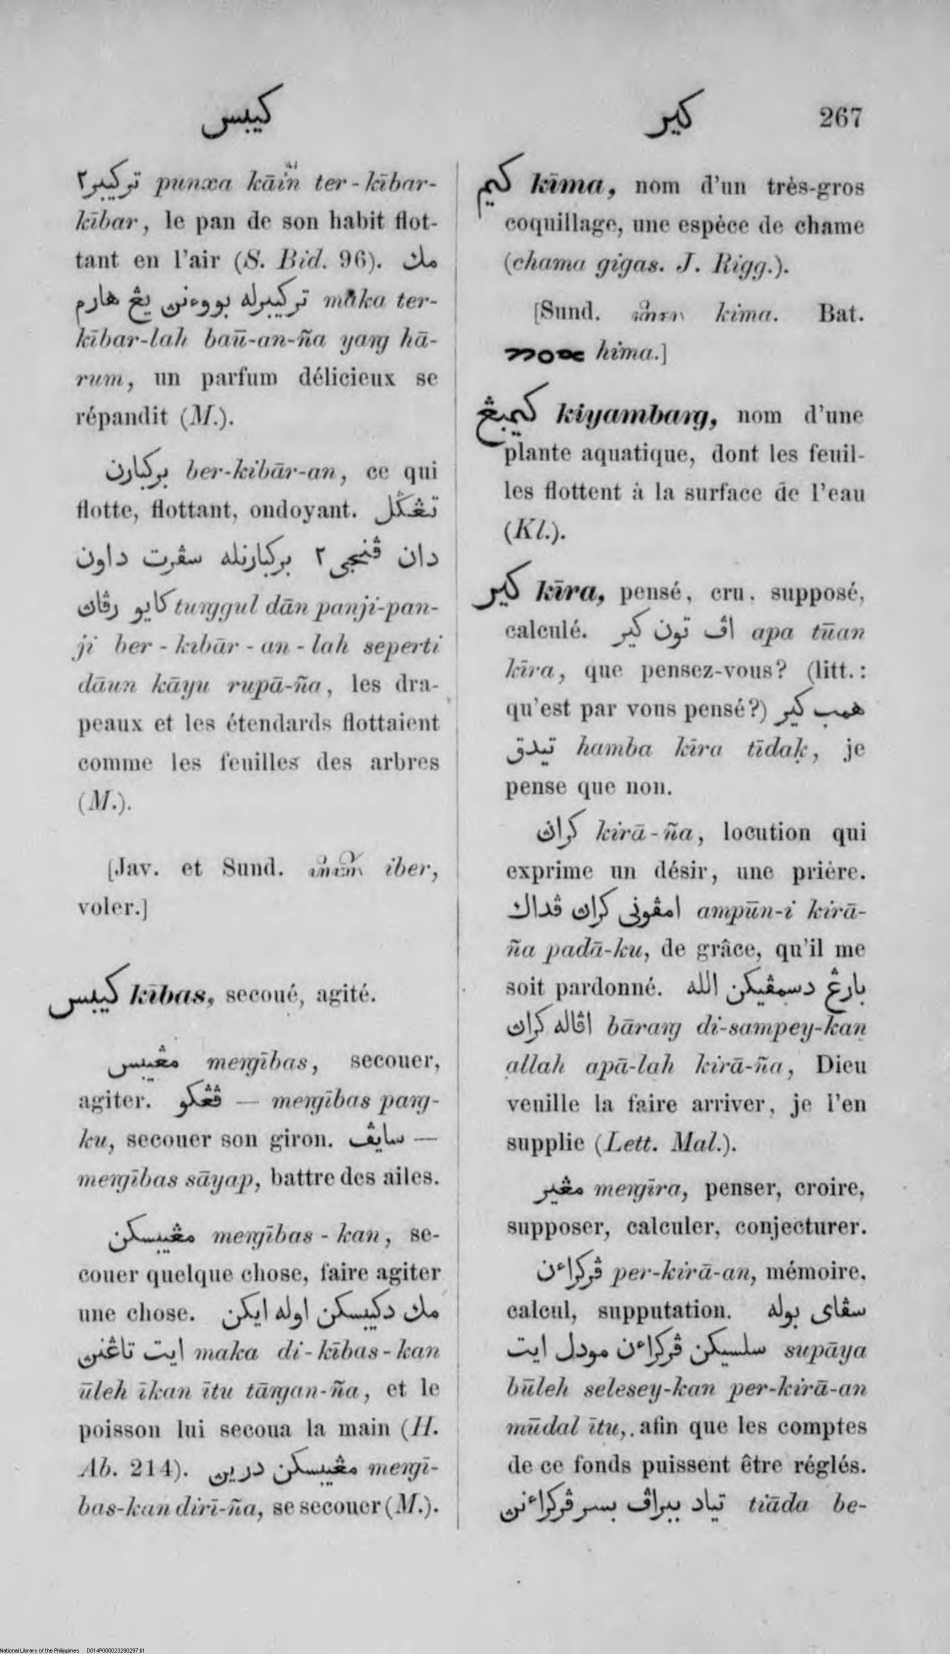 كيبس
كير
267
تركيبر٢ punxa kāin ter-kībar-
kībar, le pan de son habit flot-
tant en l'air (S. Bid. 96). مك
تركيبرله بووءنن يڠ هارم maka ter-
kībar-lah baū-an-ña yaṅg hā-
rum, un parfum délicieux se
répandit (M.).
بركبارن ber-kibār-an, ce qui
flotte, flottant, ondoyant. تڠݢل
دان ڤنجي٢ بركبارنله سڤرت داون
كايو رڤاڽ tuṅggul dān panji-pan-
ji ber-kibār-an-lah seperti
dāun kāyu rupā-ña, les dra-
peaux et les étendards flottaient
comme les feuilles des arbres
(M.).
[Jav. et Sund. iber,
voler.]
كيبس kības, secoué, agité.
مڠيبس meṅgības, secouer,
agiter. ڤڠكو — meṅgības paṅg-
ku, secouer son giron. سايڤ —
meṅgības sāyap, battre des ailes.
مڠيبسكن meṅgības-kan, se-
couer quelque chose, faire agiter
une chose. مك دكيبسكن اوله ايكن
ايت تاڠنڽ maka di-kības-kan
ūleh īkan ītu tāṅgan-ña, et le
poisson lui secoua la main (H.
Ab. 214). مڠيبسكن درين meṅgī-
bas-kan dirī-ña, se secouer (M.).
كيم kīma, nom d'un très-gros
coquillage, une espèce de chame
(chama gigas. J. Rigg.).
[Sund. kima. Bat.
hima.]
كيمبڠ kiyambaṅg, nom d'une
plante aquatique, dont les feuil-
les flottent à la surface de l'eau
(Kl.).
كير kīra, pensé, cru, supposé,
calculé. اڤ تون كير apa tūan
kīra, que pensez-vous? (litt.:
qu'est par vous pensé?) همب كير
تيدق hamba kīra tīdaḳ, je
pense que non.
كراڽ kirā-ña, locution qui
exprime un désir, une prière.
امڤوني كراڽ ڤداك ampūn-i kirā-
ña padā-ku, de grâce, qu'il me
soit pardonné. بارڠ دسمڤيكن الله
اڤاله كراڽ bāraṅg di-sampey-kan
allah apā-lah kirā-ña, Dieu
veuille la faire arriver, je l'en
supplie (Lett. Mal.).
مڠير meṅgīra, penser, croire,
supposer, calculer, conjecturer.
ڤركراءن per-kirā-an, mémoire,
calcul, supputation. سڤاي بوله
سلسيكن ڤركراءن مودل ايت supāya
būleh selesey-kan per-kirā-an
mūdal ītu, afin que les comptes
de ce fonds puissent être réglés.
تياد ببراڤ بسر ڤركراءنن tiāda be-
National Library of the Philippines